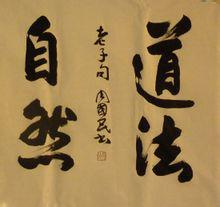 道法
自然
老子句 周國民书